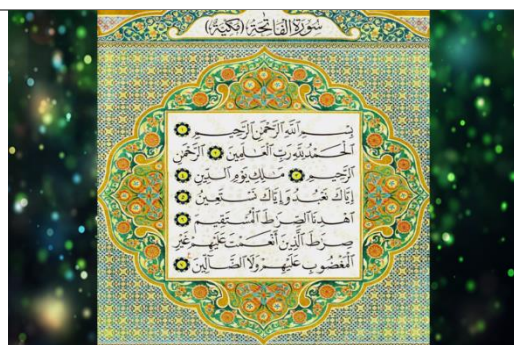 سُورَةُ الْفَاتِحَةِ (مَكِّيَّةٌ)
بِسْمِ ٱللَّهِ ٱلرَّحْمَٰنِ ٱلرَّحِيمِ ١
ٱلْحَمْدُ لِلَّهِ رَبِّ ٱلْعَٰلَمِينَ ٢ ٱلرَّحْمَٰنِ
ٱلرَّحِيمِ ٣ مَٰلِكِ يَوْمِ ٱلدِّينِ ٤
إِيَّاكَ نَعْبُدُ وَإِيَّاكَ نَسْتَعِينُ ٥
ٱهْدِنَا ٱلصِّرَٰطَ ٱلْمُسْتَقِيمَ ٦
صِرَٰطَ ٱلَّذِينَ أَنْعَمْتَ عَلَيْهِمْ غَيْرِ
ٱلْمَغْضُوبِ عَلَيْهِمْ وَلَا ٱلضَّآلِّينَ ٧